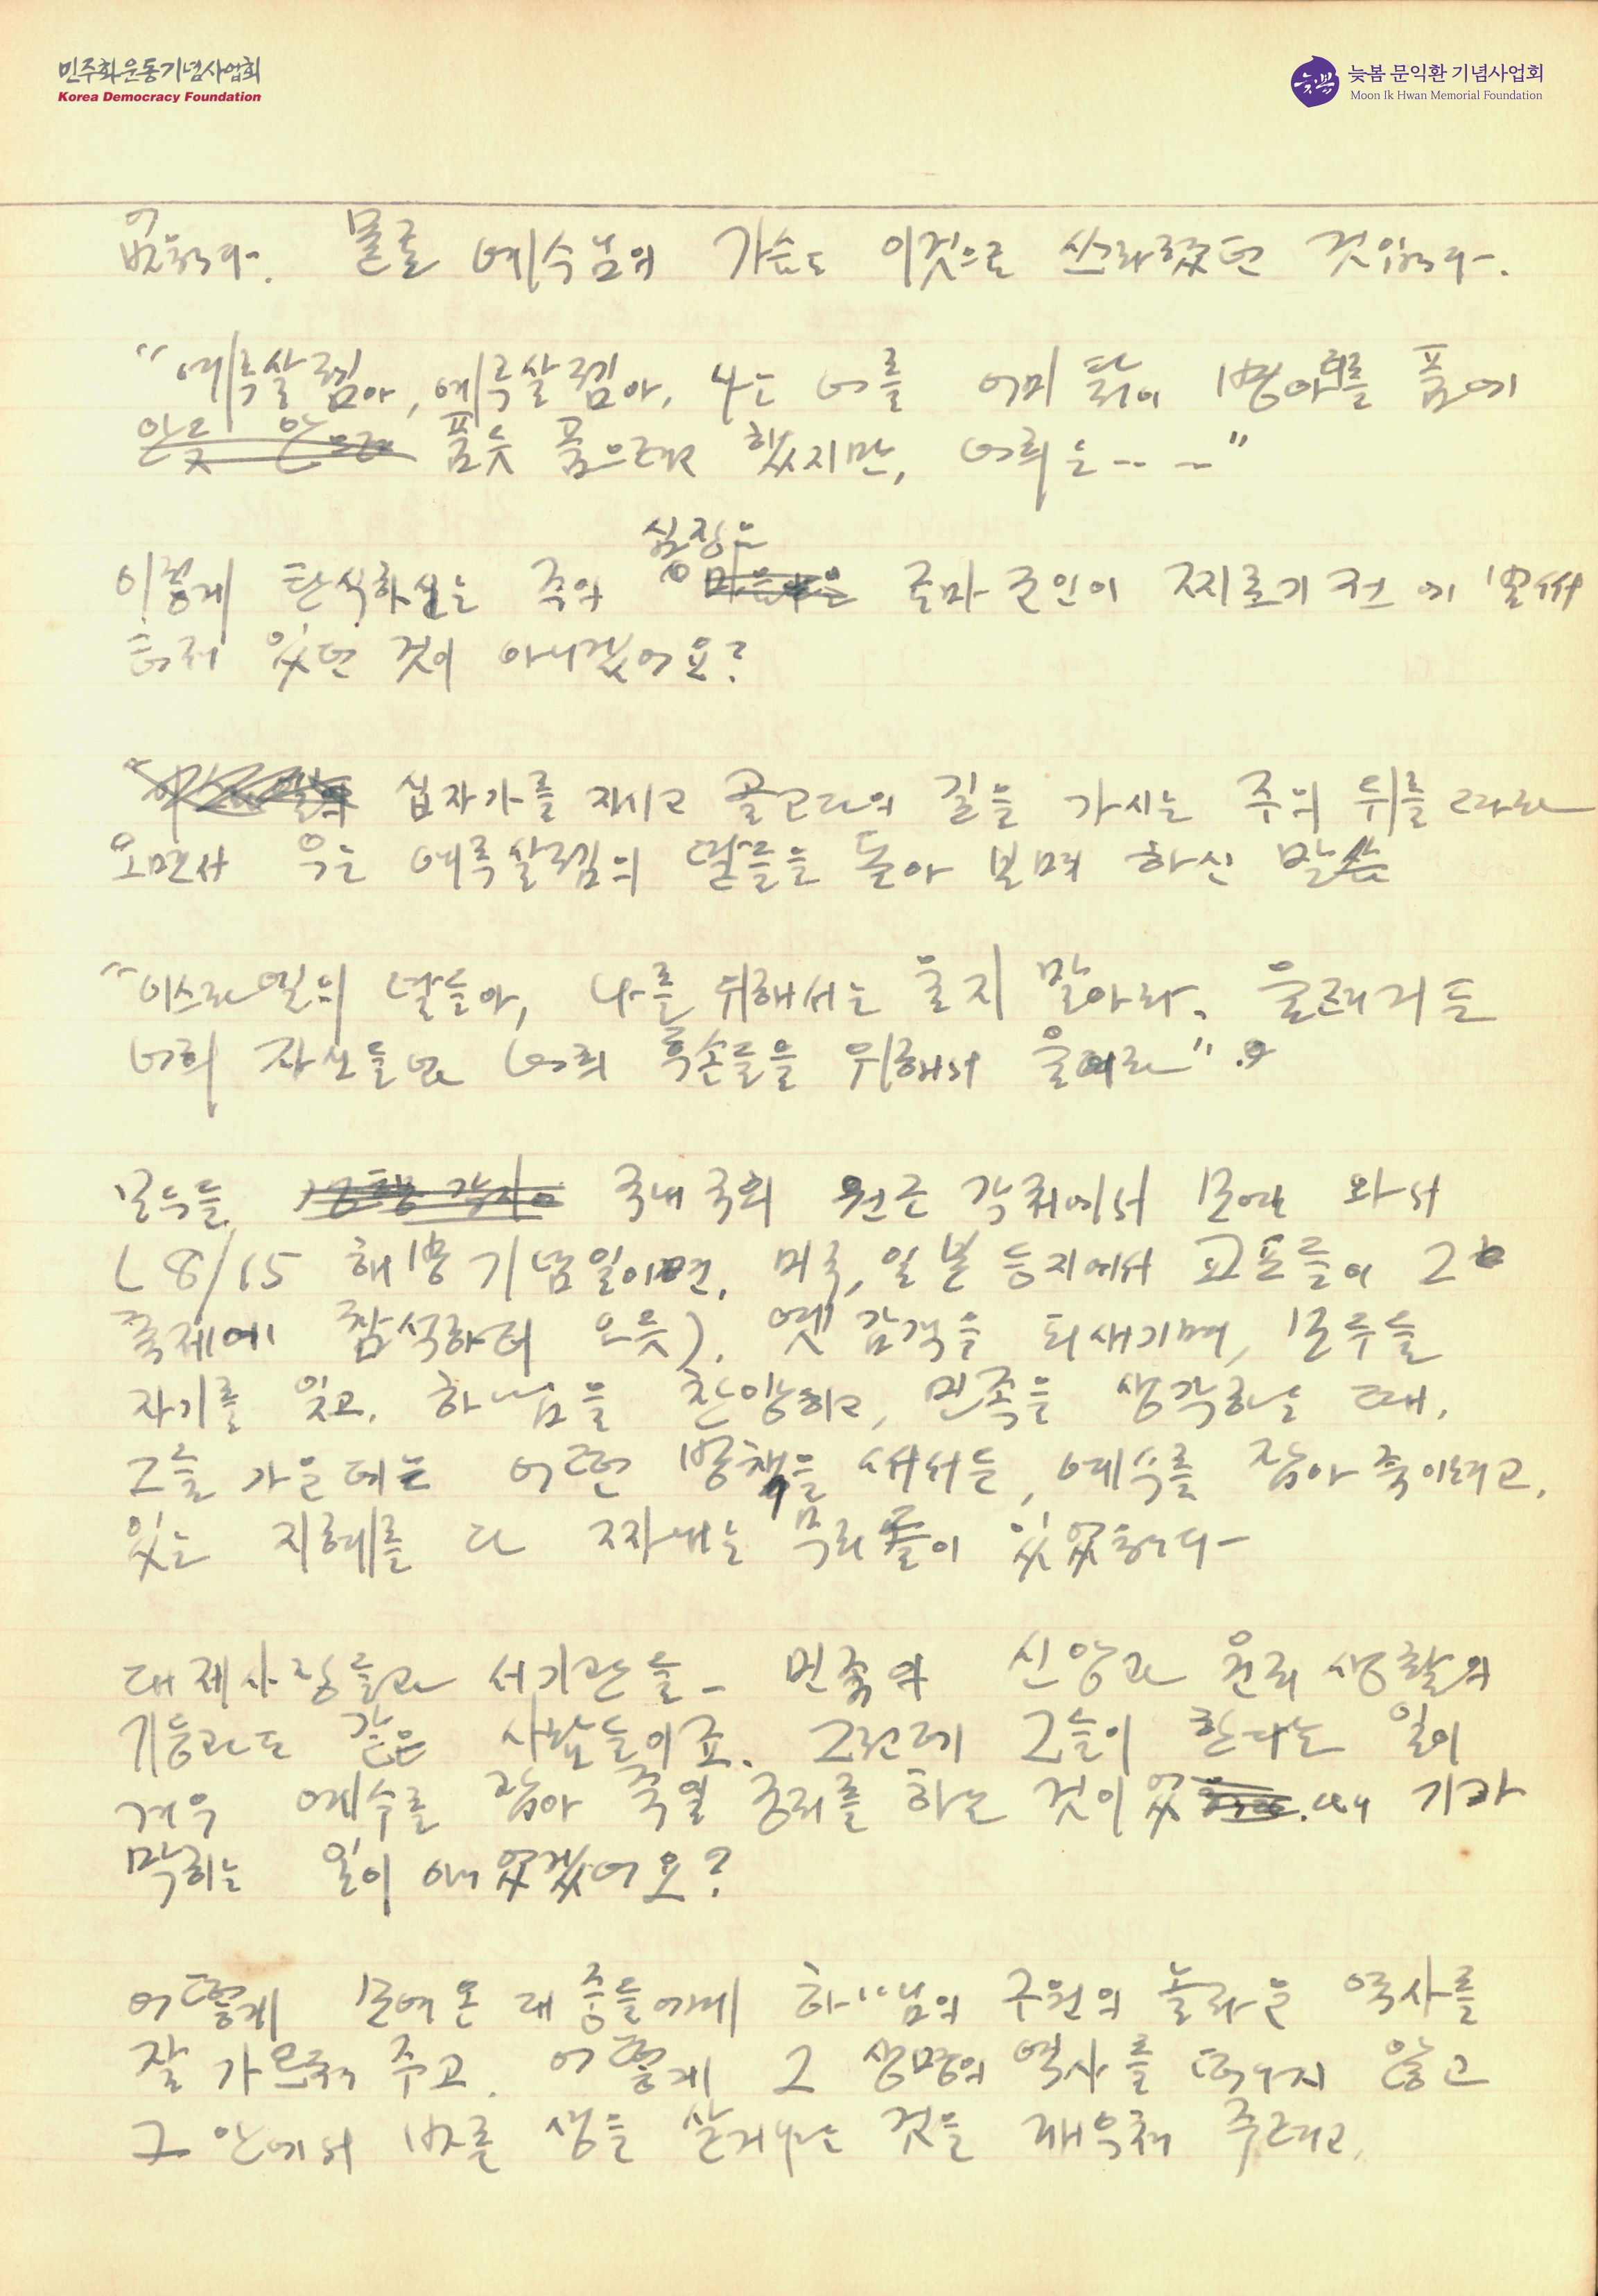 민주화운동기념사업회
Korea Democracy Foundation
늦봄 문익환 기념사업회
Moon Ik Hwan Memorial Foundation
없습니다. 물론 예수님의 가슴도 이것으로 쓰라렸던 것입니다.
"예루살렘아, 예루살렘아, 나는 너를 어미 닭이 병아리를 품에
안듯 안으려 품듯 품으려고 했지만, 너희는 -- -"
심장은
이렇게 탄식하시는 주의 로마 군인이 찌르기 전에 벌써
터져 있던 것이 아니겠어요?
십자가를 지시고 골고다의 길을 가시는 주의 뒤를 따라
오면서 우는 예루살렘의 딸들을 돌아 보며 하신 말씀
"이스라엘의 딸들아, 나를 위해서는 울지 말아라. 울려거든
너희 자신들과 너희 후손들을 위해서 울어라".
모두들 국내 국외 원근 각처에서 모여 와서
(8/15 해방 기념일이면, 미국, 일본 등지에서 교포들이 그
축제에 참석하러 오듯). 옛 감격을 되새기며, 모두들
자기를 잊고, 하나님을 찬양하고, 민족을 생각하는 때,
그들 가운데는 어떤 방책을 써서든, 예수를 잡아 죽이려고,
있는 지혜를 다 짜내는 무리들이 있었습니다-
대제사장들과 서기관들 - 민족의 신앙과 윤리 생활의
기둥과도 같은 사람들이죠. 그런데 그들이 한다는 일이
겨우 예수를 잡아 죽일 궁리를 하는 것이었 기가
막히는 일이 아니었겠어요?
어떻게 모여온 대중들에게 하나님의 구원의 놀라운 역사를
잘 가르쳐 주고, 어떻게 그 생명의 역사를 떠나지 않고
그 안에서 바른 생을 살거냐는 것을 깨우쳐 주려고,